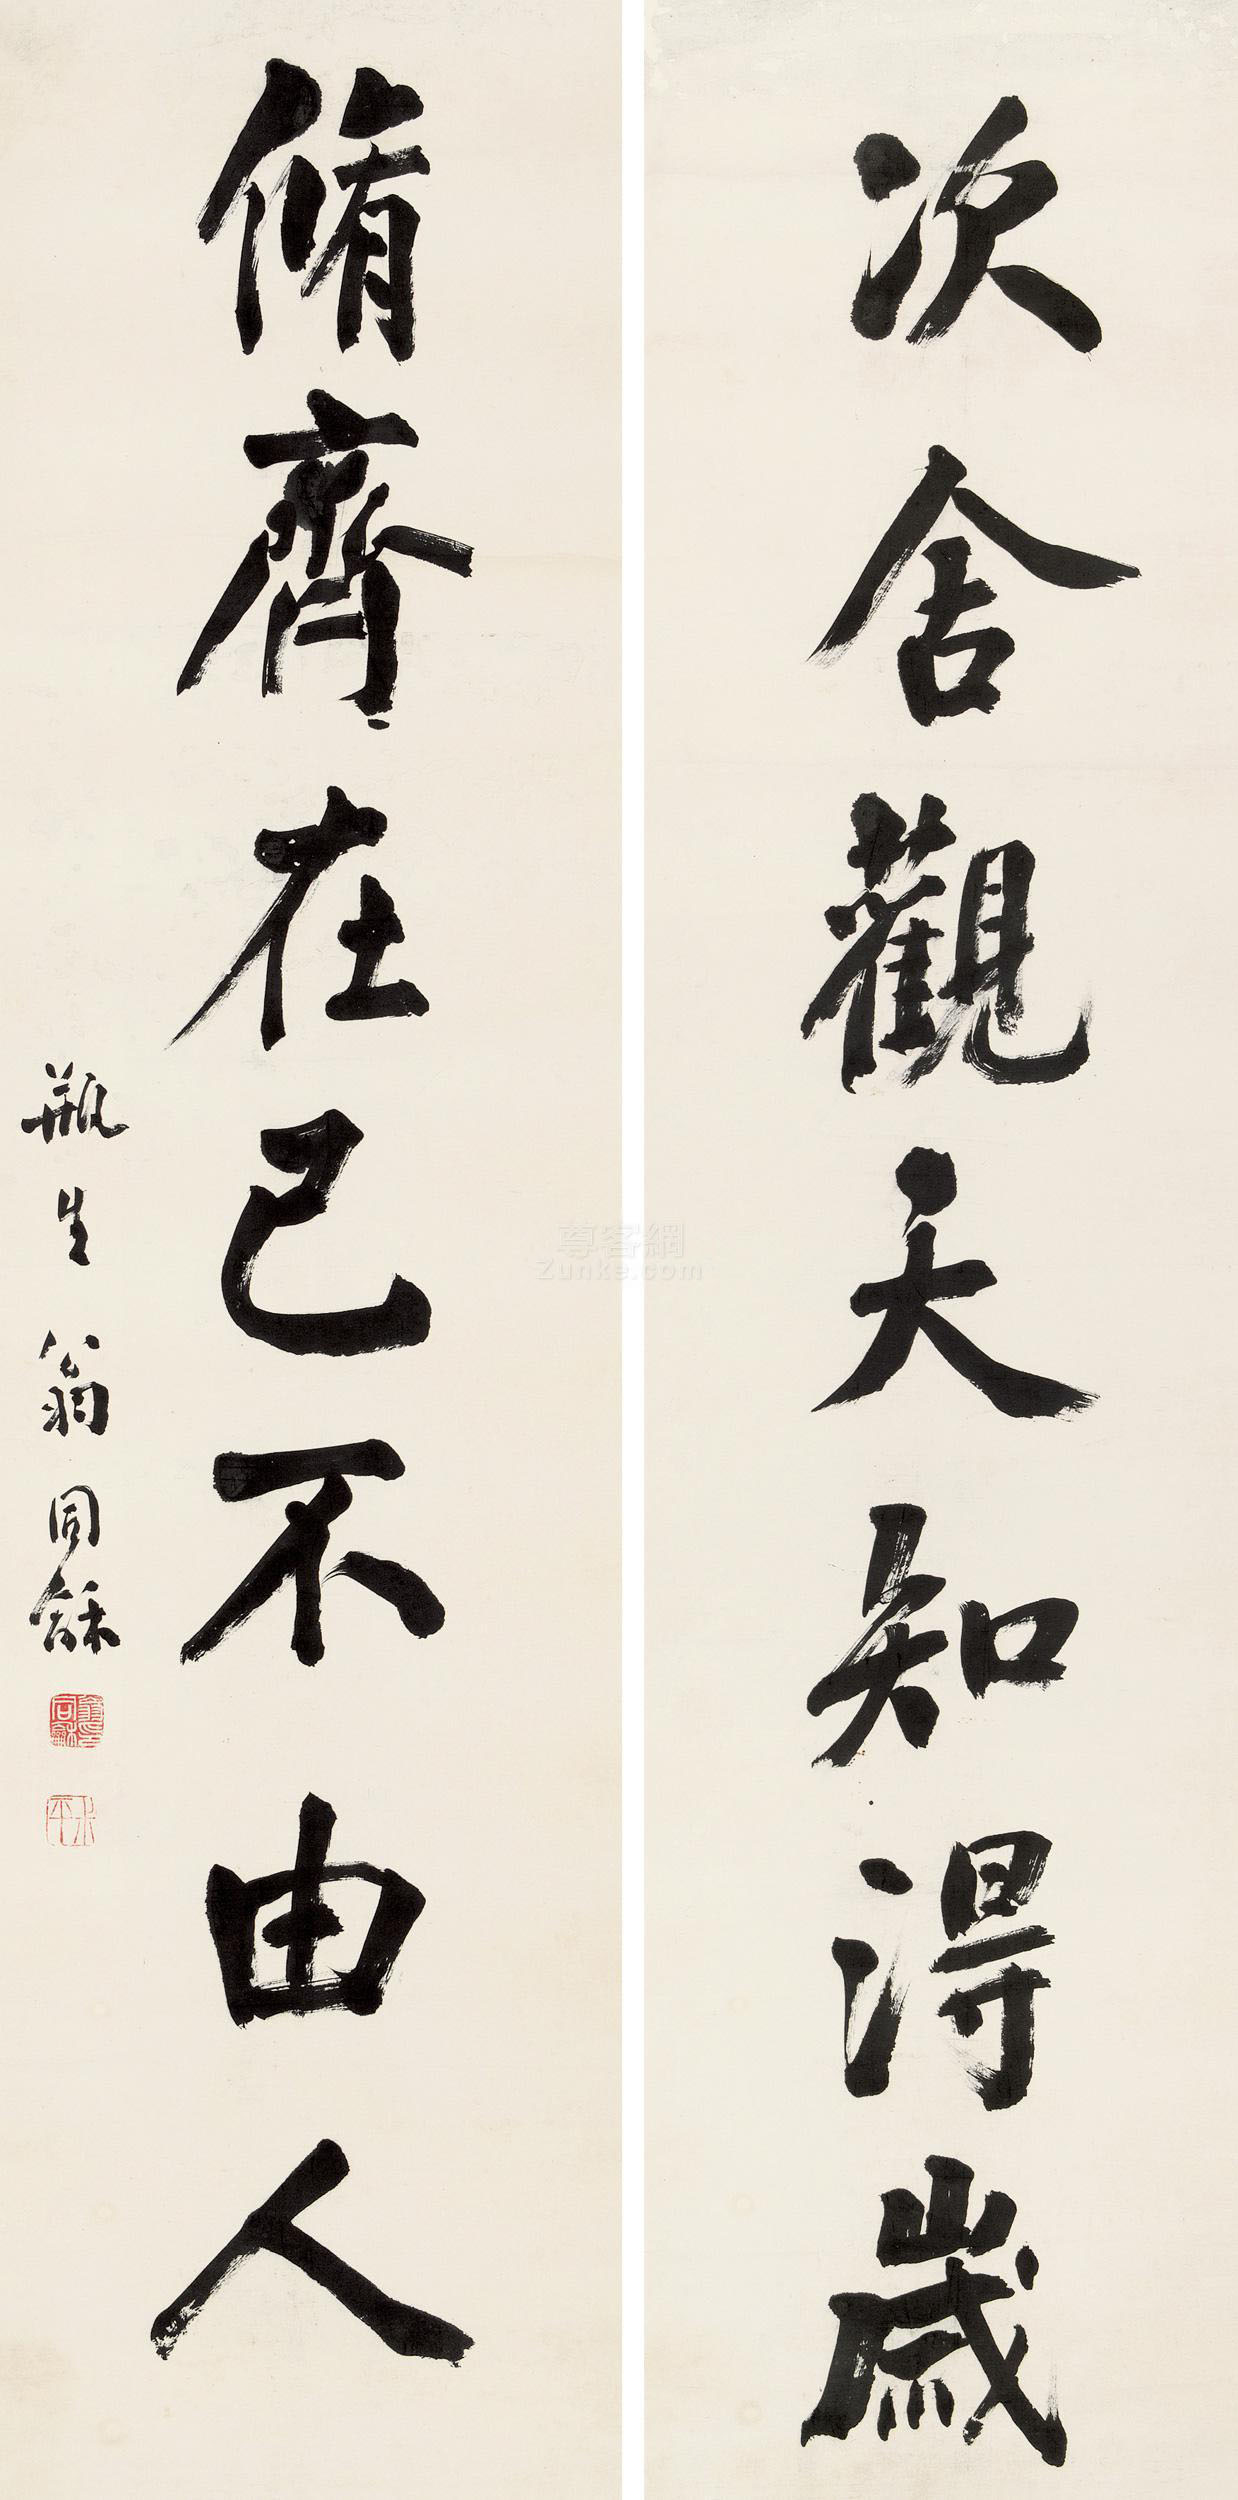 次舍觀天知得歲
脩齊在己不由人
瓶生翁同龢
翁同龢印
尊客網
Zunke.com